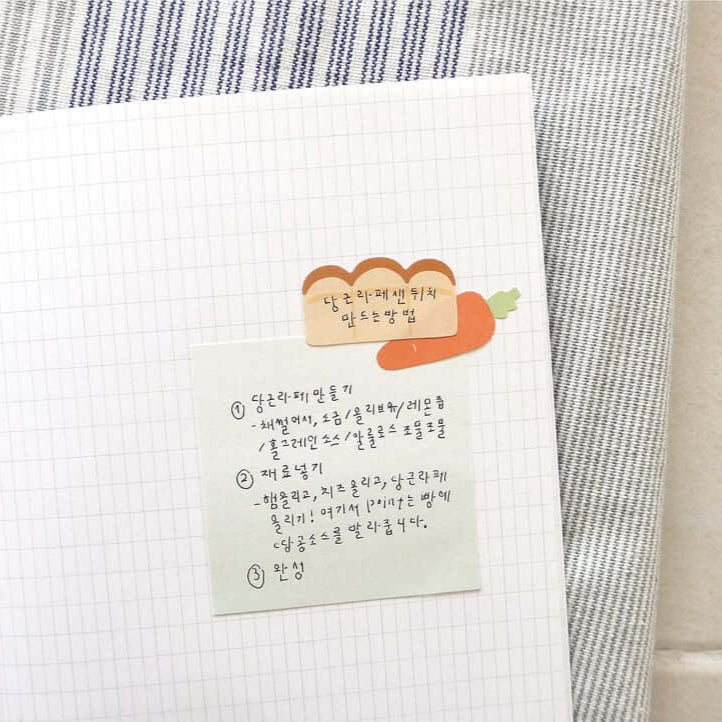 당근라페샌드위치
만드는방법
① 당근라페 만들기
- 채썰어서, 소금/올리브유/레몬즙
/홀그레인소스/알룰로스 조물조물
② 재료넣기
- 햄올리고, 치즈올리고, 당근라페
올리기! 여기서 point는 빵에
땅콩소스를 발라줍니다.
③ 완성